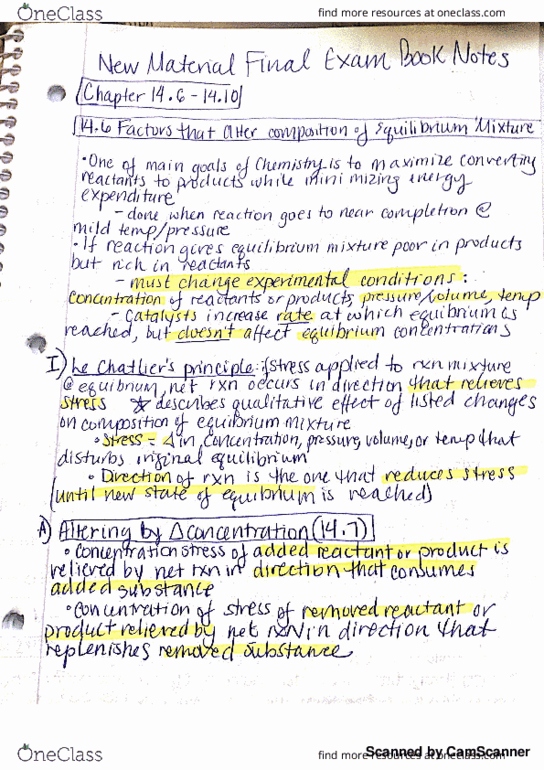 OneClass
find more resources at oneclass.com
New Material Final Exam Book Notes
Chapter 14.6 - 14.10
14.6 Factors that alter composition of Equilibrium Mixture
• One of main goals of Chemistry is to maximize converting
reactants to products while minimizing energy
expenditure
- done when reaction goes to near completion @
mild temp/pressure
• If reaction gives equilibrium mixture poor in products
but rich in reactants
- must change experimental conditions:
concentration of reactants or products, pressure/volume, temp
- Catalysts increase rate at which equilibrium is
reached, but doesn't affect equilibrium concentrations
I) Le Chatlier's principle: if stress applied to rxn mixture
@ equibrium, net rxn occurs in direction that relieves
stress ☆ describes qualitative effect of listed changes
on composition of equilibrium mixture
• Stress - Δ in concentration, pressure, volume, or temp that
disturbs original equilibrium
• Direction of rxn is the one that reduces stress
(until new state of equibrium is reached)
A) Altering by Δ concentration (14.7)
• Concentration stress of added reactant or product is
relieved by net rxn in direction that consumes
added substance
• Concentration of stress of removed reactant or
product relieved by net rxn in direction that
replenishes removed substance
OneClass
find more resources at oneclass.com
Scanned by CamScanner